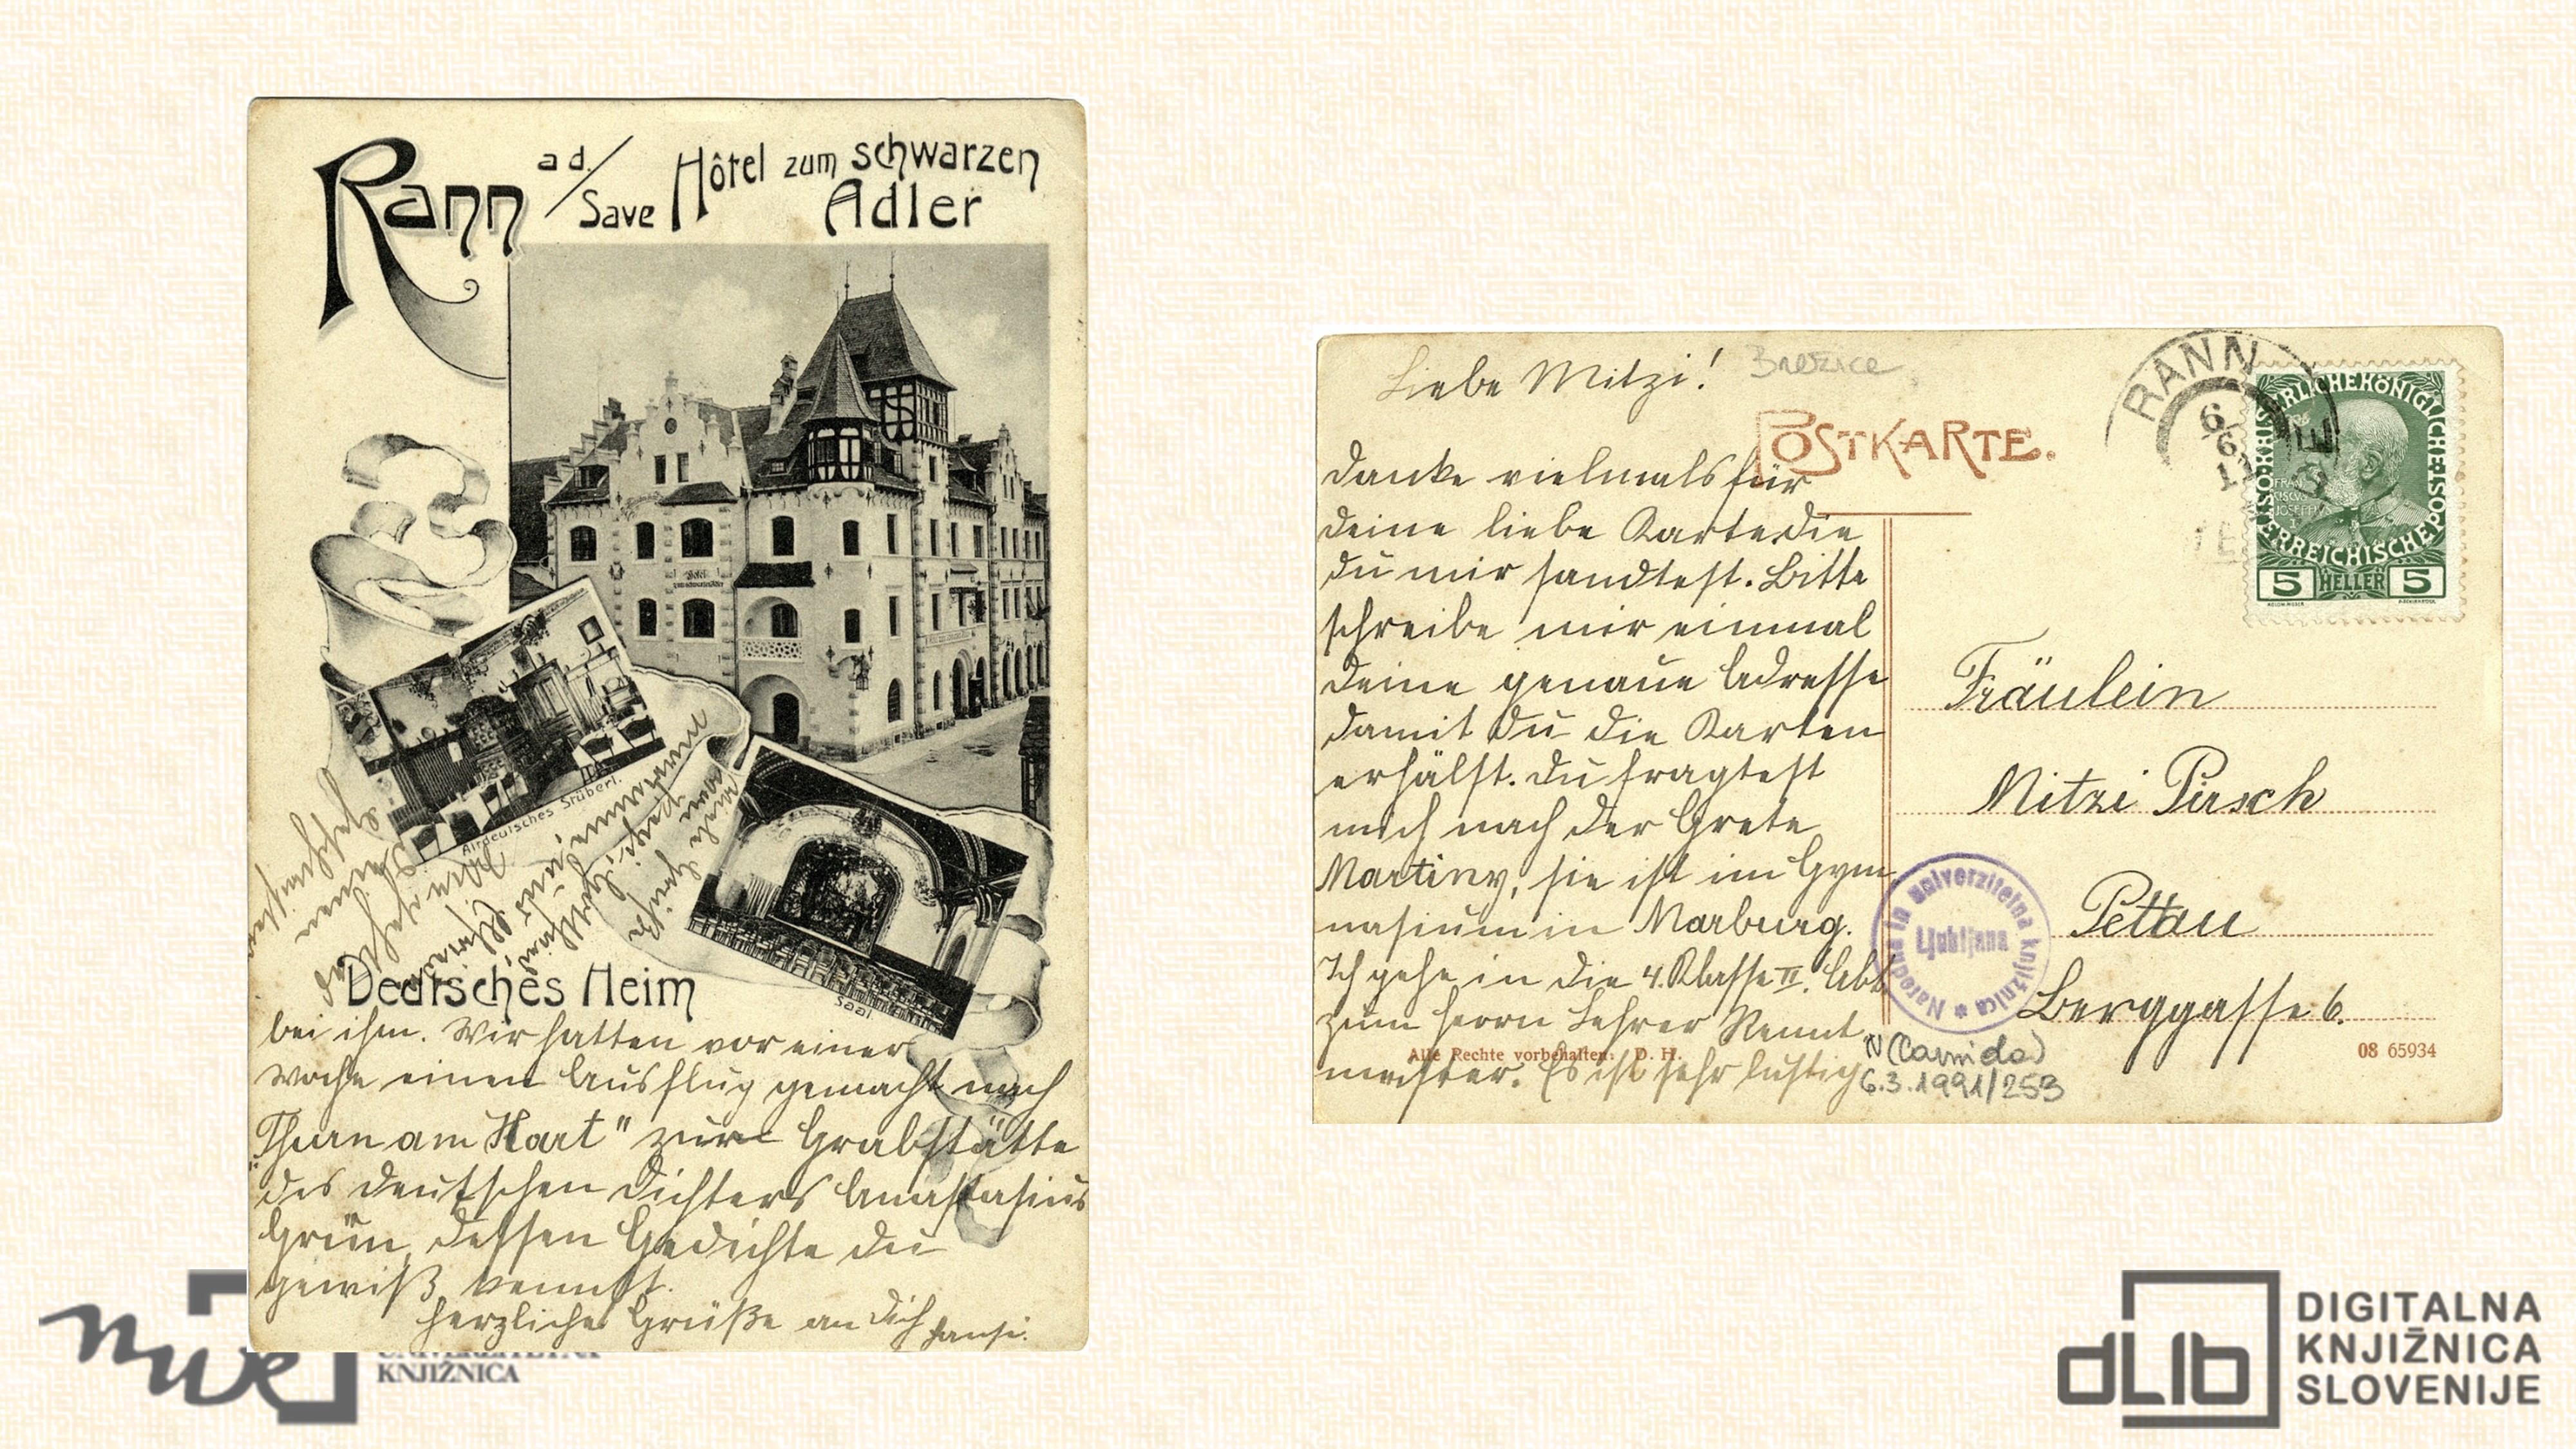 Rann
a d./
Save
Hôtel zum schwarzen
Adler
Altdeutsches Stüberl.
Saal
Deutsches Heim
bei ihm. Wir hatten vor einer
Woche einen Ausflug gemacht nach
„Thurn am Hart" zur Grabstätte
des deutschen Dichters Anastasius
Grün, dessen Gedichte du
gewiß kennst.
Herzliche Grüße an dich Hansi.
Liebe Mitzi!
Brežice
POSTKARTE.
danke vielmals für
deine liebe Karte die
du mir sandtest. Bitte
schreibe mir einmal
deine genaue Adresse
damit du die Karten
erhälst. Du fragtest
mich nach der Grete
Martiny, sie ist im Gym
nasium in Marburg.
Ich gehe in die 4. Klasse II. Abt.
zum Herrn Lehrer
meister. Es ist sehr lustig
Alle Rechte vorbehalten. D. H.
RANN
6
6
KAISERLICHE KÖNIGLICHE
ÖSTERREICHISCHE POST
FRAN
CISCVS
JOSEPHVS
5 HELLER 5
Fräulein
Mitzi Pirsch
Pettau
Berggasse 6.
Narodna in univerzitetna knjižnica
Ljubljana
N
6.3.1991/253
08 65934
nuk
UNIVERZITETNA
KNJIŽNICA
dLib
DIGITALNA
KNJIŽNICA
SLOVENIJE